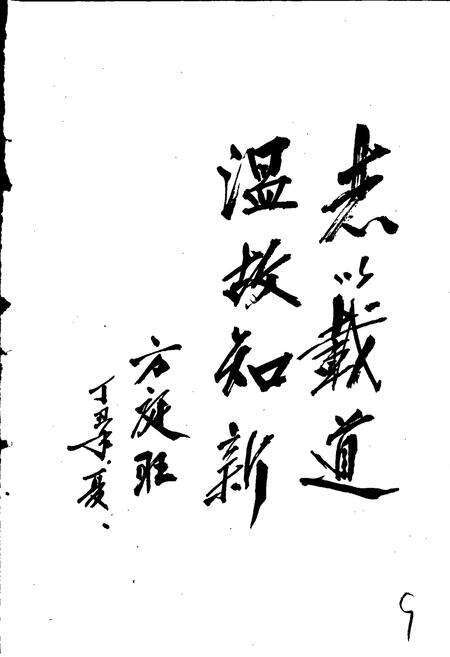 志以载道
温故知新
方庭旺
丁丑年夏
9